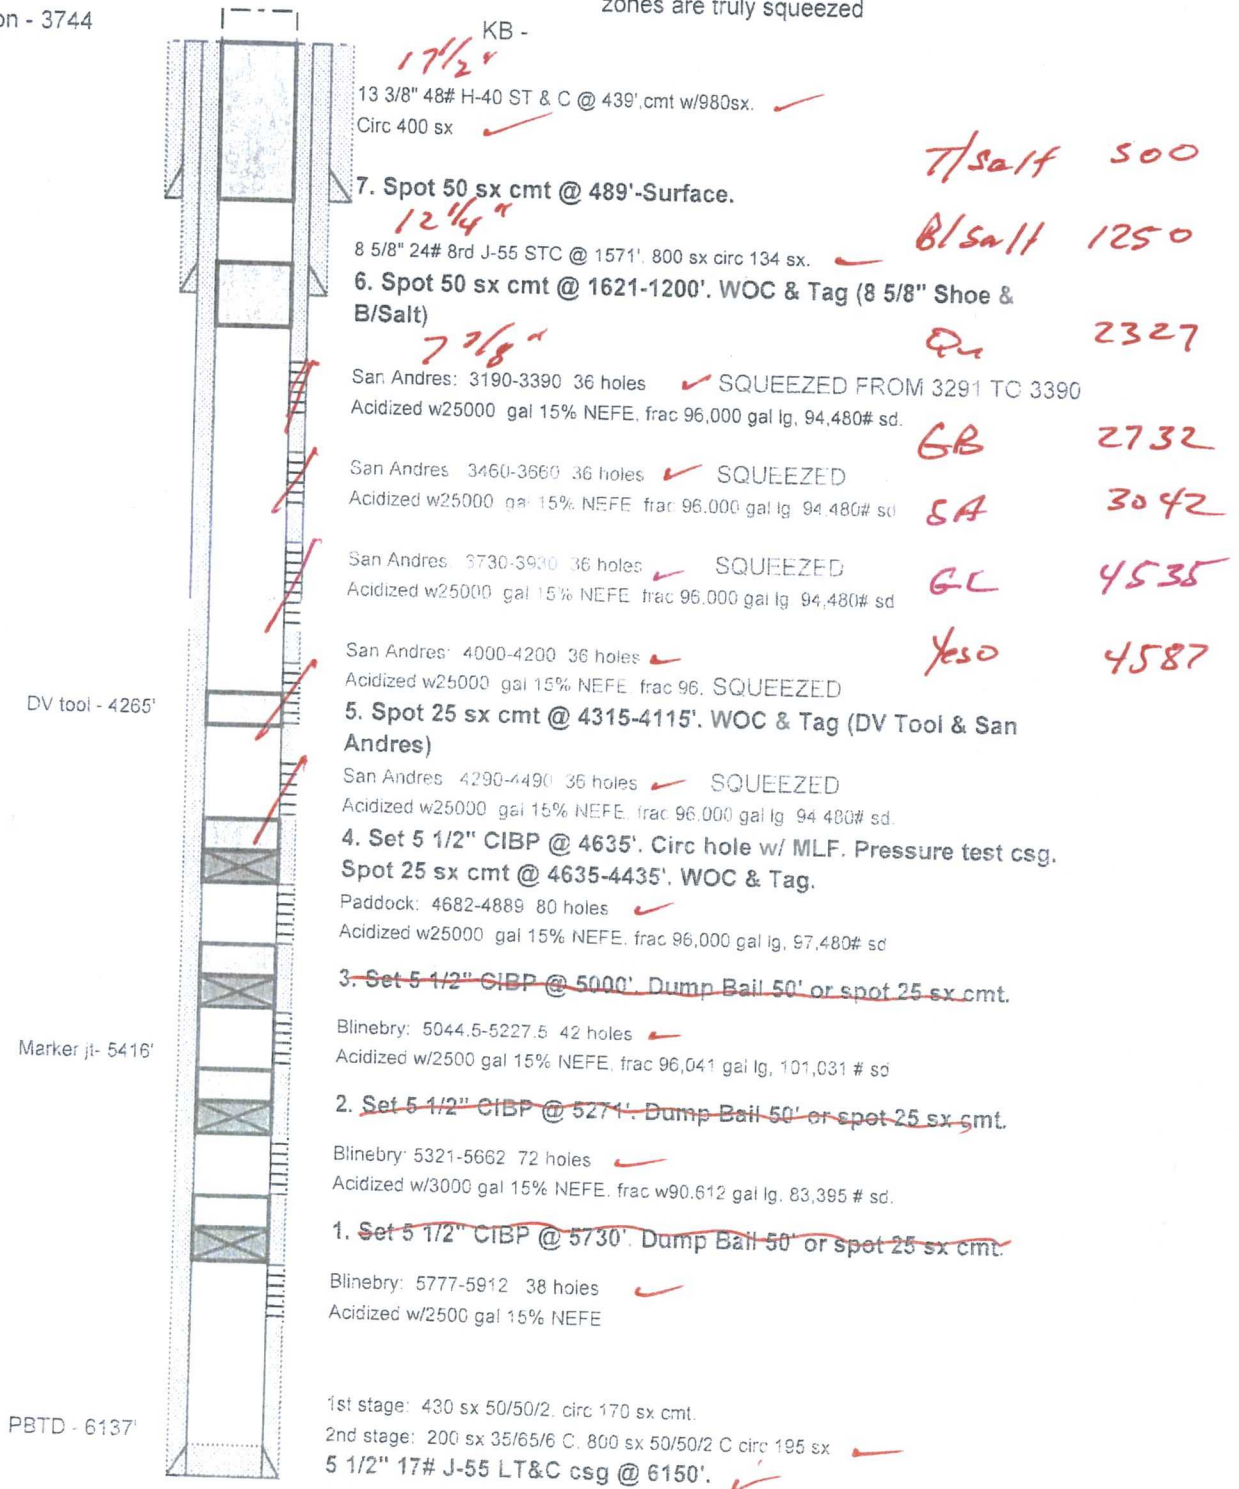 on - 3744
zones are truly squeezed
KB -
17 1/2"
13 3/8" 48# H-40 ST & C @ 439',cmt w/980sx.
Circ 400 sx
T/Salt 500
7. Spot 50 sx cmt @ 489'-Surface.
12 1/4"
B/Salt 1250
8 5/8" 24# 8rd J-55 STC @ 1571'. 800 sx circ 134 sx.
6. Spot 50 sx cmt @ 1621-1200'. WOC & Tag (8 5/8" Shoe &
B/Salt)
Qn 2327
7 7/8"
San Andres: 3190-3390 36 holes SQUEEZED FROM 3291 TO 3390
Acidized w25000 gal 15% NEFE, frac 96,000 gal lg, 94,480# sd.
GB 2732
San Andres 3460-3660 36 holes SQUEEZED
Acidized w25000 gal 15% NEFE frac 96.000 gal lg 94,480# sd
SA 3042
San Andres 3730-3930 36 holes SQUEEZED
Acidized w25000 gal 15% NEFE frac 96.000 gal lg 94,480# sd
GL 4535
San Andres: 4000-4200 36 holes
Yeso 4587
Acidized w25000 gal 15% NEFE, frac 96. SQUEEZED
DV tool - 4265'
5. Spot 25 sx cmt @ 4315-4115'. WOC & Tag (DV Tool & San
Andres)
San Andres 4290-4490 36 holes SQUEEZED
Acidized w25000 gal 15% NEFE, frac 96.000 gal lg 94 480# sd.
4. Set 5 1/2" CIBP @ 4635'. Circ hole w/ MLF. Pressure test csg.
Spot 25 sx cmt @ 4635-4435'. WOC & Tag.
Paddock: 4682-4889 80 holes
Acidized w25000 gal 15% NEFE, frac 96,000 gal lg, 97,480# sd
3. Set 5 1/2" CIBP @ 5000'. Dump Bail 50' or spot 25 sx cmt.
Blinebry: 5044.5-5227.5 42 holes
Marker jt- 5416'
Acidized w/2500 gal 15% NEFE, frac 96,041 gal lg, 101,031 # sd
2. Set 5 1/2" CIBP @ 5271'. Dump Bail 50' or spot 25 sx cmt.
Blinebry: 5321-5662 72 holes
Acidized w/3000 gal 15% NEFE. frac w90.612 gal lg, 83,395 # sd.
1. Set 5 1/2" CIBP @ 5730'. Dump Bail 50' or spot 25 sx cmt.
Blinebry: 5777-5912 38 holes
Acidized w/2500 gal 15% NEFE
1st stage: 430 sx 50/50/2. circ 170 sx cmt.
PBTD - 6137'
2nd stage: 200 sx 35/65/6 C. 800 sx 50/50/2 C circ 195 sx
5 1/2" 17# J-55 LT&C csg @ 6150'.